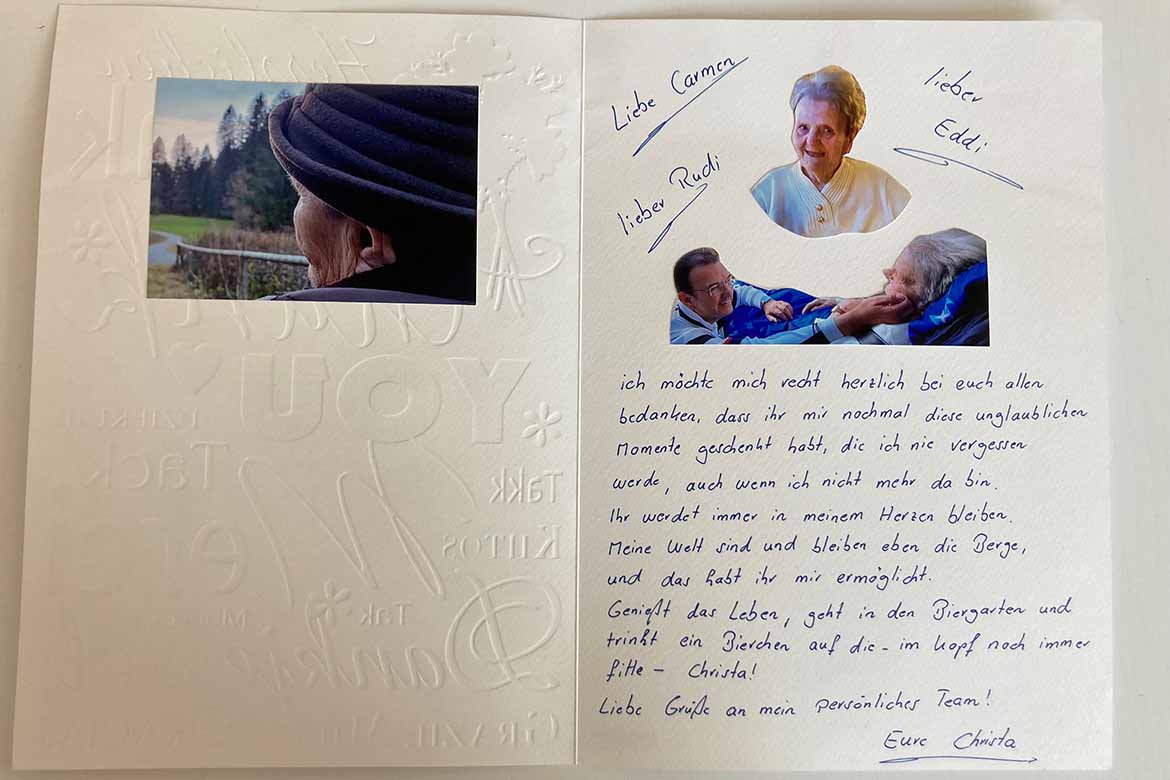 Herzlichen
YOU
Tack
Takk
KIITOS
Merci
Tak
Danke
GRAZIE
Liebe Carmen
lieber Rudi
lieber
Eddi
ich möchte mich recht herzlich bei euch allen
bedanken, dass ihr mir nochmal diese unglaublichen
Momente geschenkt habt, die ich nie vergessen
werde, auch wenn ich nicht mehr da bin.
Ihr werdet immer in meinem Herzen bleiben.
Meine Welt sind und bleiben eben die Berge,
und das habt ihr mir ermöglicht.
Genießt das Leben, geht in den Biergarten und
trinkt ein Bierchen auf die - im Kopf noch immer
fitte - Christa!
Liebe Grüße an mein persönliches Team!
Eure Christa